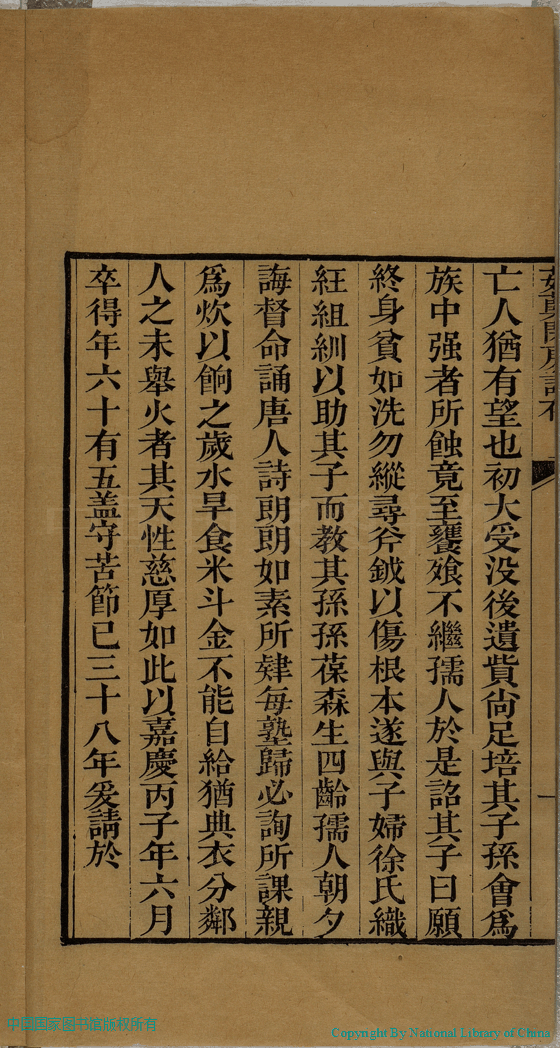 亡人猶有望也初大受没後遺貲尙足培其子孫會爲
族中强者所蝕竟至饔飱不繼孺人於是詔其子曰願
終身貧如洗勿縱尋斧鉞以傷根本遂與子婦徐氏織
紝組紃以助其子而教其孫孫葆森生四齡孺人朝夕
誨督命誦唐人詩朗朗如素所肄每塾歸必詢所課親
爲炊以餉之歲水旱食米斗金不能自給猶典衣分鄰
人之未舉火者其天性慈厚如此以嘉慶丙子年六月
卒得年六十有五盖守苦節已三十八年爰請於
一
中国国家图书馆版权所有
Copyright By National Library of China